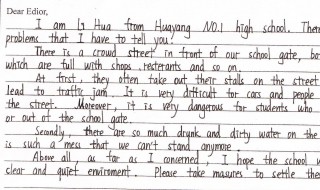 Dear Edior,
I am Li Hua from Huayang NO.1 high school. Ther
problems that I have to tell you?
There is a crowd street in front of our school gate, bo
which are full with shops, resterants and so on.
At first, they often take out their stalls on the street
lead to traffic jam. It is very difficult for cars and people
the street. Moreover, it is very dangerous for students who
or out of the school gate.
Secondly, there are so much drunk and dirty water on the
is such a mess that we can't stand anymore.
Above all, as far as I concerned, I hope the school w
clear and quiet enviroment. Please take masures to settle the